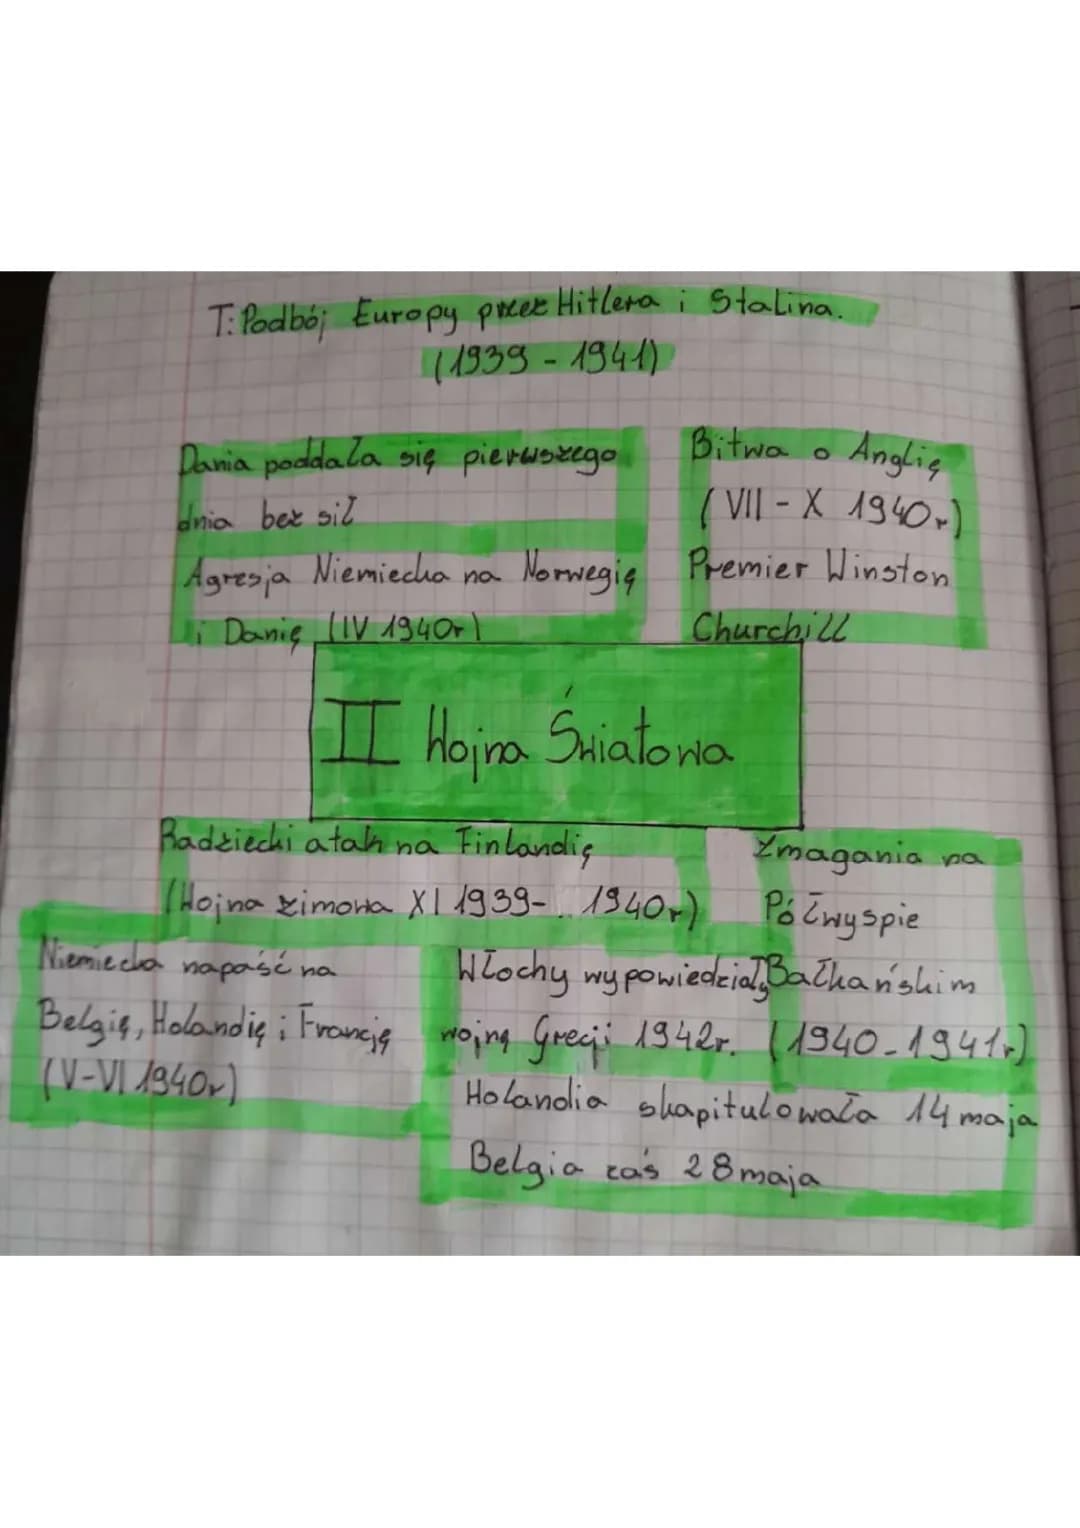 T: Podbój Europy przez Hitlera i Stalina.
(1939 - 1941)
Dania poddała się pierwszego
dnia bez sił
Agresja Niemiecka na Norwegię
i Danię (IV 1940r)
Bitwa o Anglię
(VII - X 1940r)
Premier Winston
Churchill
II Wojna Światowa
Radziecki atak na Finlandię
(Wojna zimowa XI 1939- .. 1940r)
Zmagania na
Półwyspie
Bałkańskim
(1940-1941r)
Niemiecka napaść na
Belgię, Holandię i Francję
(V-VI 1940r)
Włochy wypowiedziały
wojnę Grecji 1942r.
Holandia skapitulowała 14 maja
Belgia zaś 28 maja